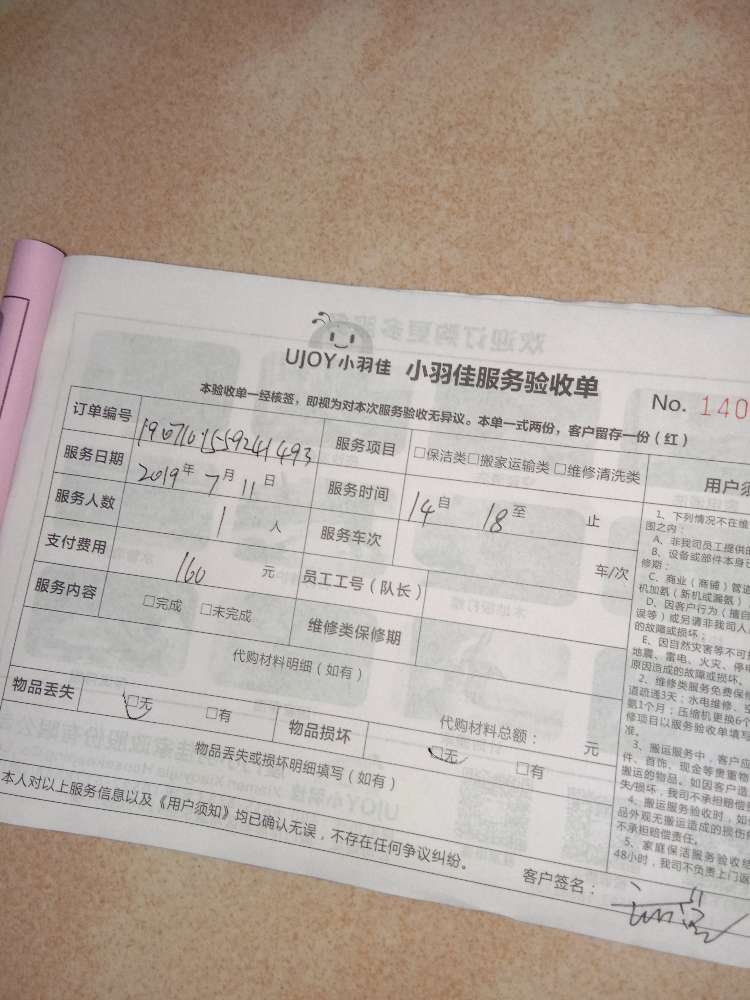 UJOY小羽佳 小羽佳服务验收单
No. 140
本验收单一经核签，即视为对本次服务验收无异议。本单一式两份，客户留存一份（红）
订单编号 服务项目 □保洁类□搬家运输类□维修清洗类
服务日期 2019年7月11日 服务时间 14自 18至 止
服务人数 1人 服务车次 车/次
支付费用 160 元 员工工号（队长）
服务内容 □完成 □未完成 维修类保修期
代购材料明细（如有）
代购材料总额： 元
物品丢失 □无 □有 物品损坏 □无 □有
物品丢失或损坏明细填写（如有）
本人对以上服务信息以及《用户须知》均已确认无误，不存在任何争议纠纷。
客户签名：
用户须
1、下列情况不在维
围之内：
A、非我司员工提供的
B、设备或部件本身已
修期；
C、商业（商铺）管道
机加氨（新机或漏氨）
D、因客户行为（擅自
误等）或另请非我司人
的故障或损坏；
E、因自然灾害等不可
地震、雷电、火灾、停电
原因造成的故障或损坏。
2、维修类服务免费保
道疏通3天；水电维修、空
氨1个月；压缩机更换6个
修项目以服务验收单填写
准。
3、搬运服务中，客户应
件、首饰、现金等贵重物
搬运的物品。如因客户造
失/损坏，我司不承担赔偿
4、搬运服务验收时，如
品外观无搬运造成的损伤
不承担赔偿责任。
5、家庭保洁服务验收结
48小时，我司不负责上门返